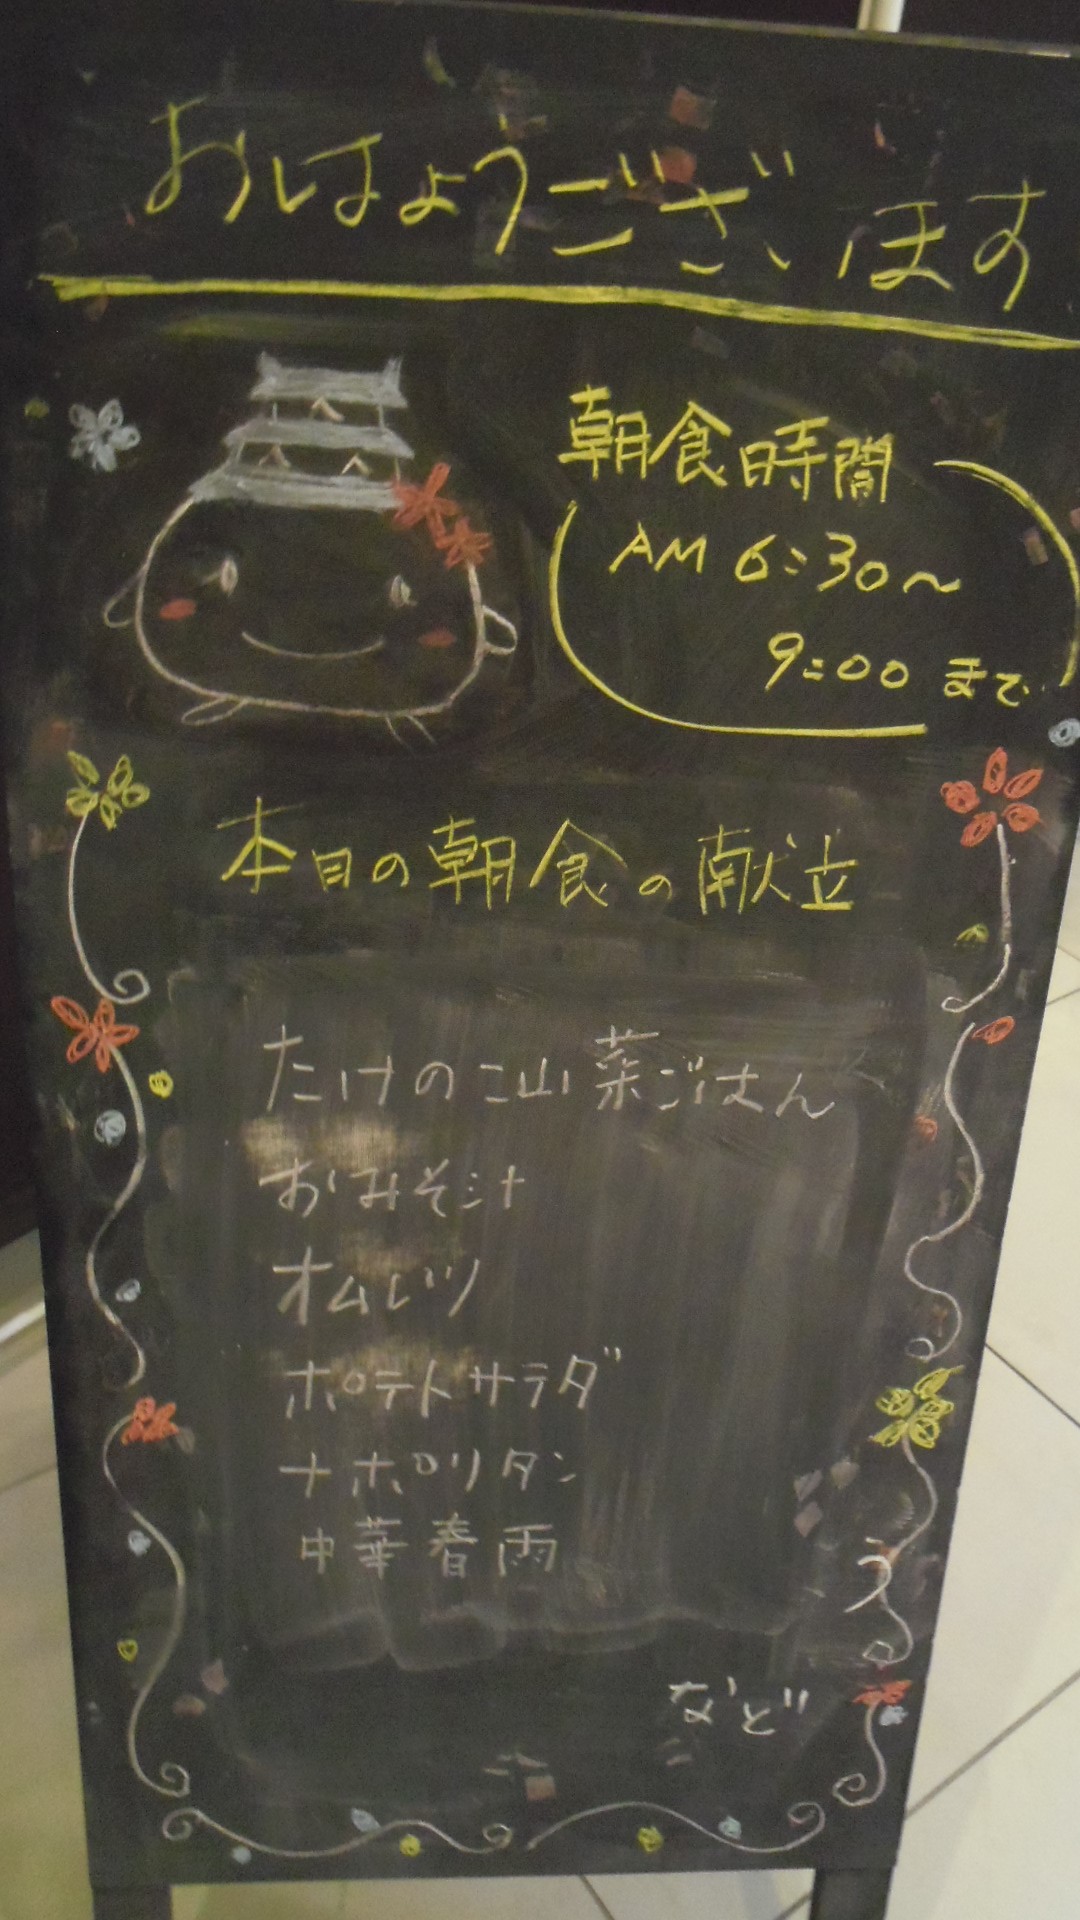 おはようございます
朝食時間
AM 6:30～
9:00 まで
本日の朝食の献立
たけのこ山菜ごはん
おみそ汁
オムレツ
ポテトサラダ
ナポリタン
中華春雨
など